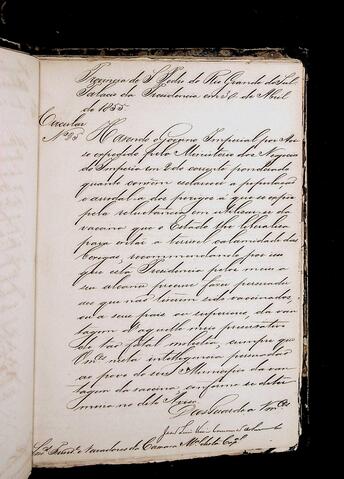 Provincia de S. Pedro do Rio Grande do Sul
Palacio da Presidencia em 30 de Abril
de 1855
Circular
Nº 25
Havendo o Governo Imperial por Avi-
so expedido pelo Ministerio dos Negocios
do Imperio em 2 do corrente ponderado
quanto convem esclarecer a população
e arredal-a dos perigos á que se expõe
pela reluctancia em utilisar-se da
vaccina que o Estado lhe liberalisa
para evitar a terrivel calamidade das
bexigas, recommendando por isso
que esta Presidencia pelos meios a
seu alcance procure fazer persuadir
aos que não tiverem sido vaccinados,
ou a seus pais ou superiores, da van-
tagem d'aquelle meio preservativo
de tão fatal molestia, cumpre que
Vmces nesta intelligencia persuadão
ao povo de seu Municipio da van-
tagem da vaccina, conforme se deter-
mina no dito Aviso.
Deos Guarde a Vmces
Snrs. Presidente e Vereadores da Camara Mal desta Capal